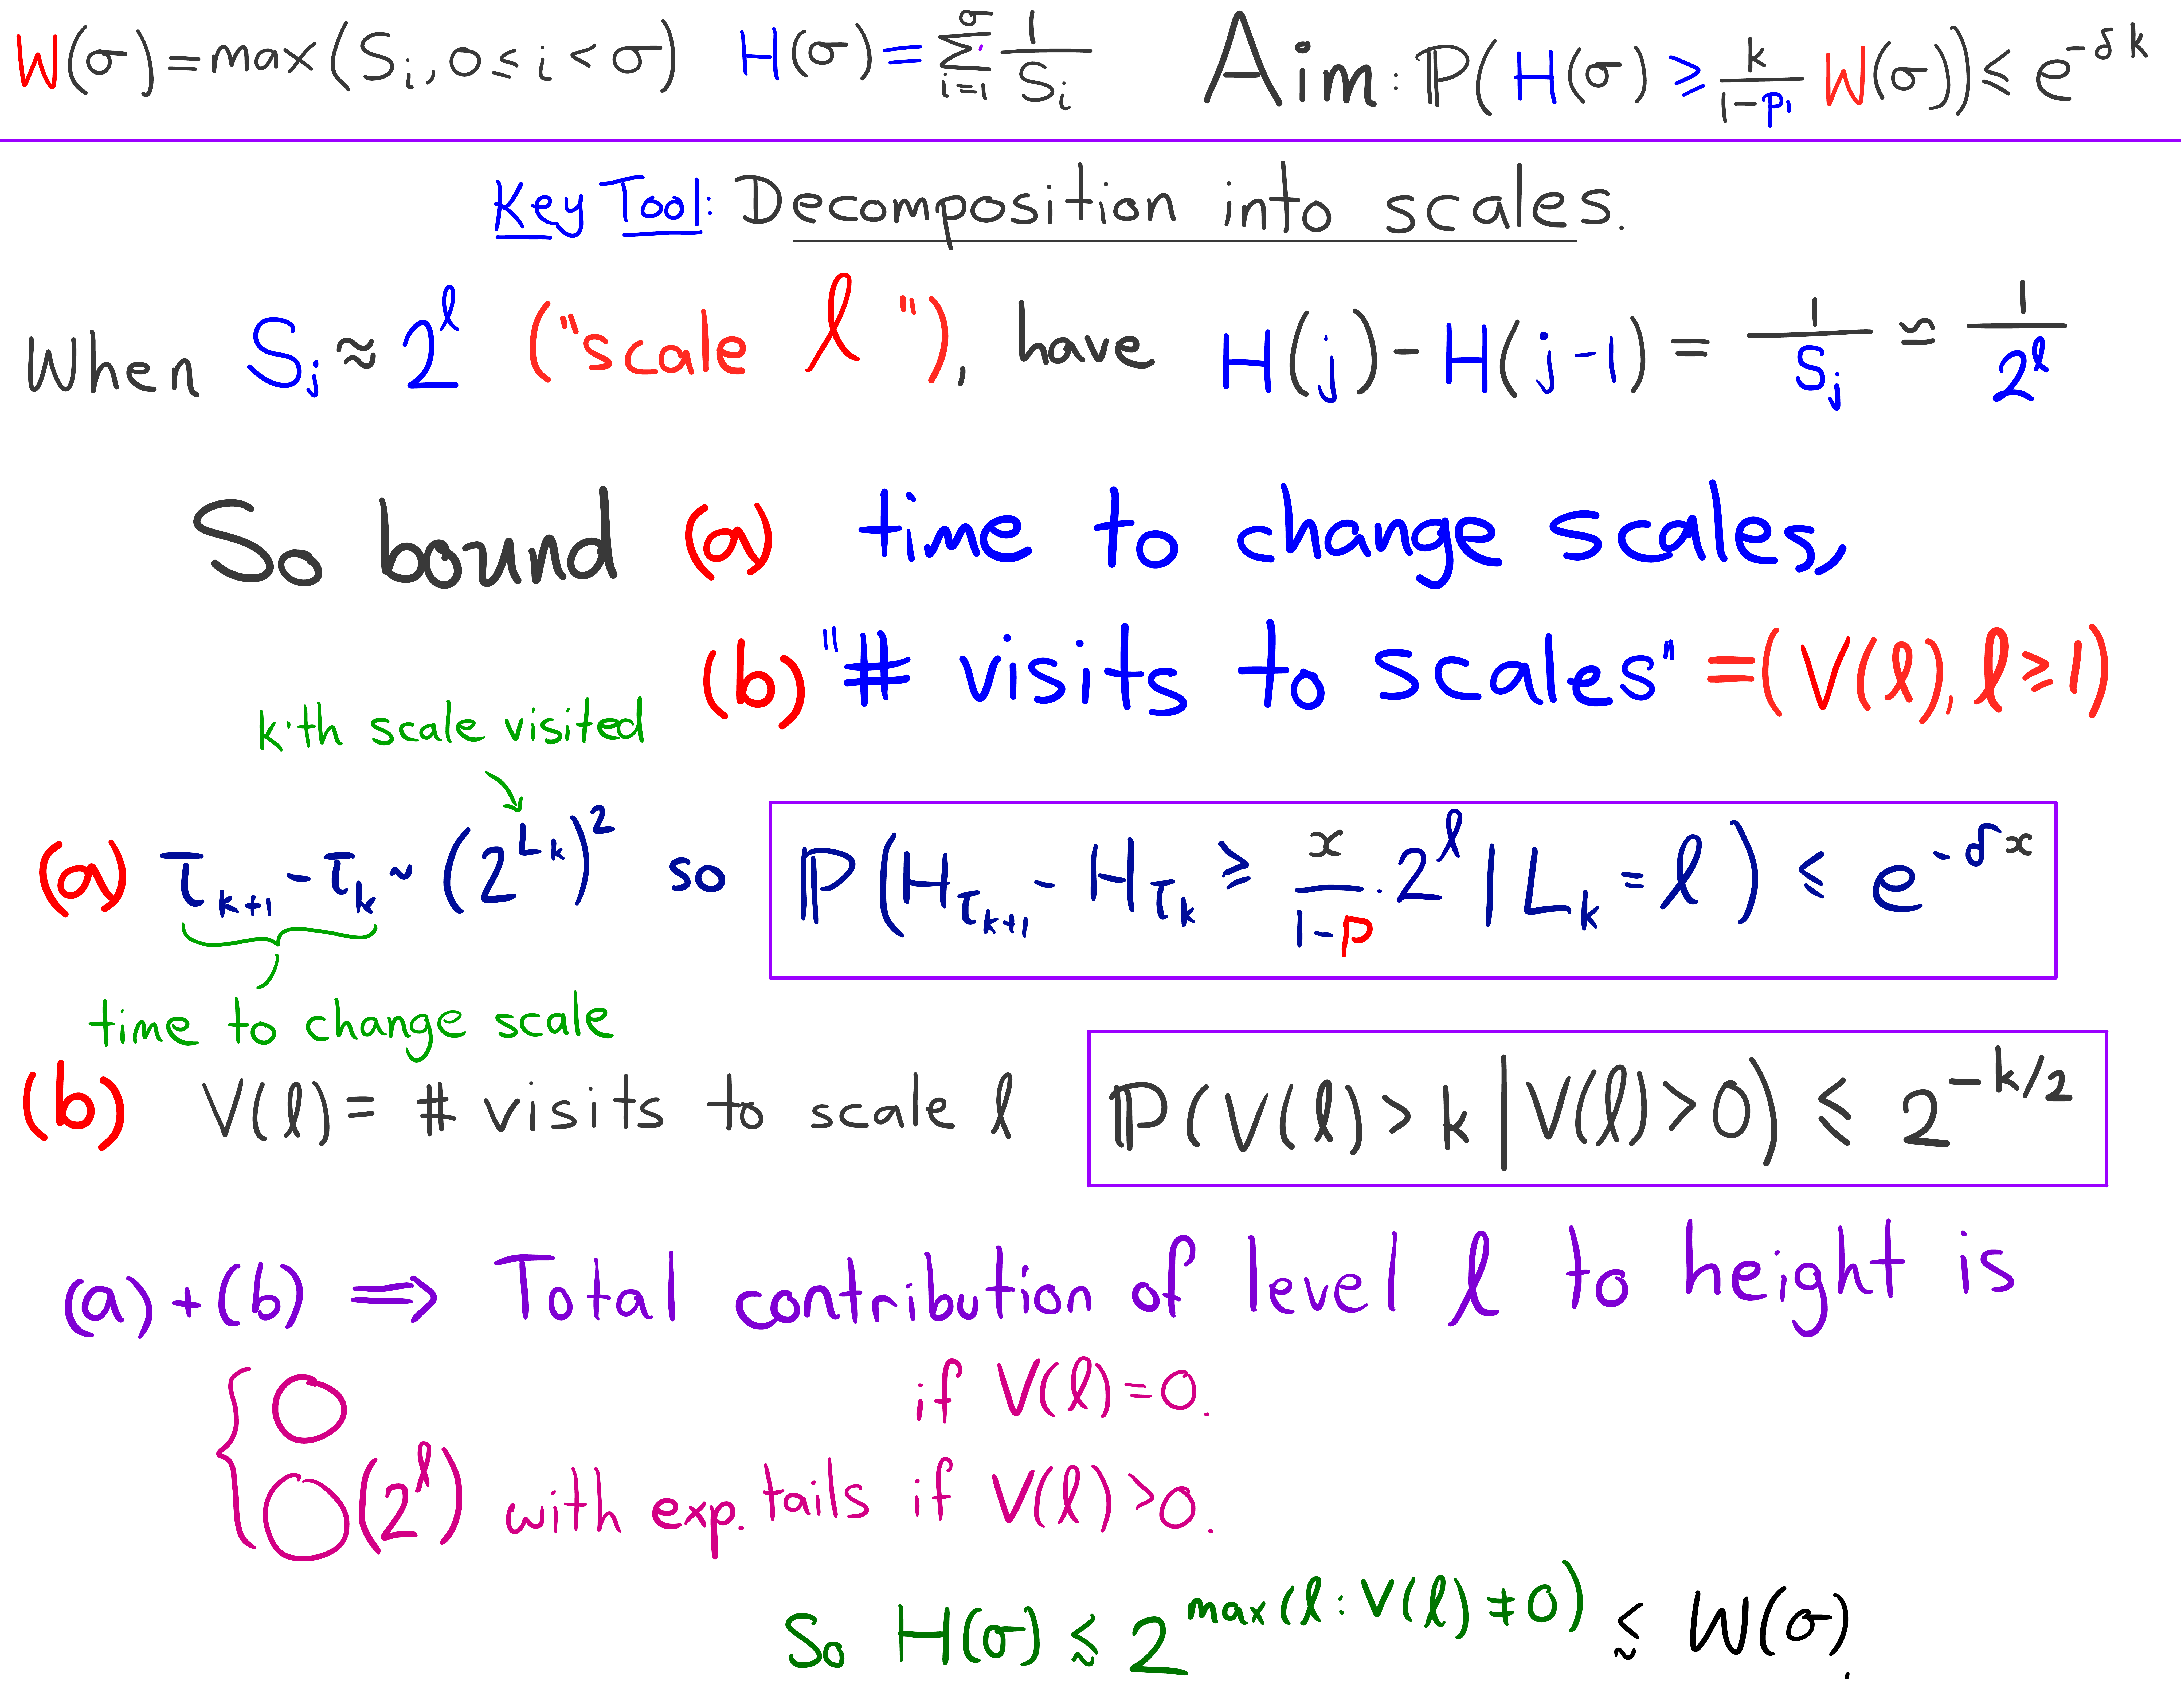 W(σ)=max(S_i, 0≤i<σ) H(σ)=∑_{i=1}^{σ} 1/S_i Aim: P(H(σ) ≥ k/(1-p_1) W(σ)) ≤ e^{-δk}
Key Tool: Decomposition into scales.
When S_j ≈ 2^ℓ ("scale ℓ"), have H(j)-H(j-1) = 1/S_j ≈ 1/2^ℓ
So bound (a) time to change scales,
(b) "# visits to scales" =(V(ℓ), ℓ≥1)
k'th scale visited
(a) τ_{k+1} - τ_k ~ (2^{L_k})^2 so P(H_{τ_{k+1}} - H_{τ_k} ≥ x/(1-p) · 2^ℓ | L_k = ℓ) ≤ e^{-δx}
time to change scale
(b) V(ℓ) = # visits to scale ℓ P(V(ℓ)>k | V(ℓ)>0) ≤ 2^{-k/2}
(a)+(b) ⟹ Total contribution of level ℓ to height is
{ 0 if V(ℓ)=0.
O(2^ℓ) with exp. tails if V(ℓ)>0.
So H(σ) ≲ 2^{max(ℓ: V(ℓ)≠0)} ≲ W(σ).